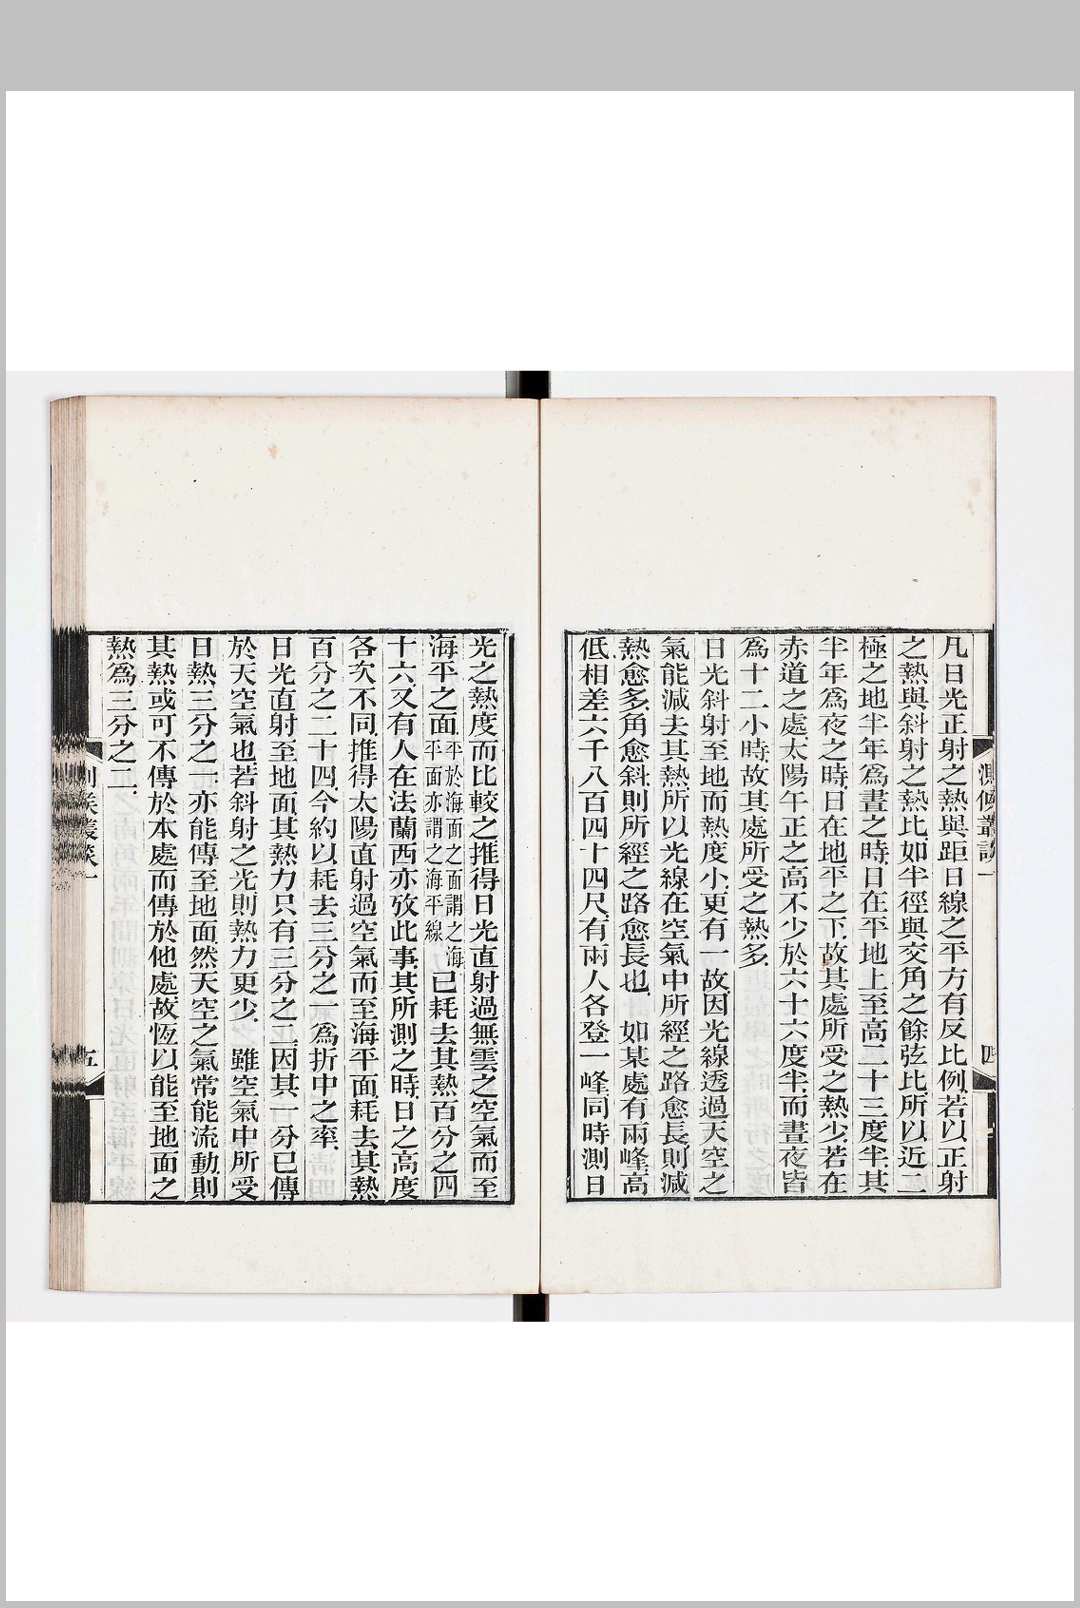 凡日光正射之熱與距日線之平方有反比例若以正射
之熱與斜射之熱比如半徑與交角之餘弦比所以近二
極之地半年爲晝之時日在平地上至高二十三度半其
半年爲夜之時日在地平之下故其處所受之熱少若在
赤道之處太陽午正之高不少於六十六度半而晝夜皆
爲十二小時故其處所受之熱多
日光斜射至地而熱度小更有一故因光線透過天空之
氣能減去其熱所以光線在空氣中所經之路愈長則減
熱愈多角愈斜則所經之路愈長也 如某處有兩峰高
低相差六千八百四十四尺有兩人各登一峰同時測日
測候叢談一
四
光之熱度而比較之推得日光直射過無雲之空氣而至
海平之面平於海面之面謂之海平面亦謂之海平線已耗去其熱百分之四
十六又有人在法蘭西亦攷此事其所測之時日之高度
各次不同推得太陽直射過空氣而至海平面耗去其熱
百分之二十四今約以耗去三分之一爲折中之率
日光直射至地面其熱力只有三分之二因其一分已傳
於天空氣也若斜射之光則熱力更少 雖空氣中所受
日熱三分之一亦能傳至地面然天空之氣常能流動則
其熱或可不傳於本處而傳於他處故恆以能至地面之
熱爲三分之二
五